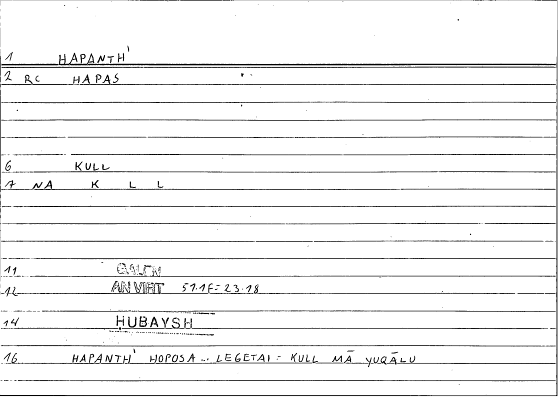 1 HAPANTH'
2 RC HAPAS
6 KULL
7 NA K L L
11 GALEN
12 AN VIRT 51.1F= 23.18
14 HUBAYSH
16 HAPANTH' HOPOSA .. LEGETAI = KULL MĀ YUQĀLU